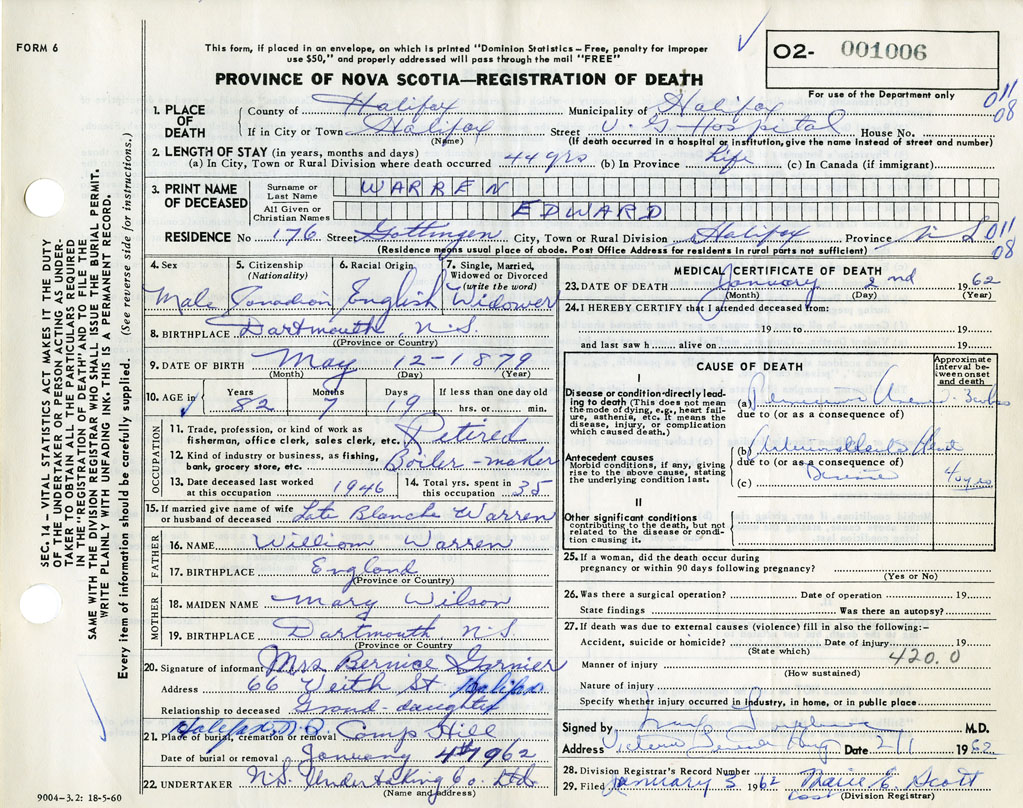 FORM 6
This form, if placed in an envelope, on which is printed "Dominion Statistics – Free, penalty for improper
use $50," and properly addressed will pass through the mail "FREE"
O2- 001006
For use of the Department only
PROVINCE OF NOVA SCOTIA—REGISTRATION OF DEATH
011
08
1. PLACE OF DEATH
County of Halifax Municipality of Halifax
If in City or Town Halifax Street V. G Hospital House No.
(Name) (If death occurred in a hospital or institution, give name instead of street and number)
2. LENGTH OF STAY (in years, months and days)
(a) In City, Town or Rural Division where death occurred 44 yrs (b) In Province Life (c) In Canada (if immigrant)
3. PRINT NAME OF DECEASED
Surname or Last Name WARREN
All Given or Christian Names EDWARD
RESIDENCE No 176 Street Gottingen City, Town or Rural Division Halifax Province N S
011
08
(Residence means usual place of abode. Post Office Address for residents in rural parts not sufficient)
4. Sex
Male
5. Citizenship (Nationality)
Canadian
6. Racial Origin
English
7. Single, Married, Widowed or Divorced (write the word)
Widower
8. BIRTHPLACE Dartmouth, N.S.
(Province or Country)
9. DATE OF BIRTH May 12-1879
(Month) (Day) (Year)
10. AGE in
Years Months Days If less than one day old
82 7 19 hrs. or min.
OCCUPATION
11. Trade, profession, or kind of work as
fisherman, office clerk, sales clerk, etc. Retired
12. Kind of industry or business, as fishing,
bank, grocery store, etc. Boiler-maker
13. Date deceased last worked
at this occupation 1946
14. Total yrs. spent in
this occupation 35
15. If married give name of wife
or husband of deceased Late Blanche Warren
FATHER
16. NAME William Warren
17. BIRTHPLACE England
(Province or Country)
MOTHER
18. MAIDEN NAME Mary Wilson
19. BIRTHPLACE Dartmouth, N.S.
(Province or Country)
20. Signature of informant Mrs Bernice Garnier
Address 66 Veith St Halifax
Relationship to deceased Grand-daughter
21. Place of burial, cremation or removal Camp Hill
Date of burial or removal January 4th 1962
22. UNDERTAKER N.S. Undertaking Co. Ltd.
(Name and address)
9004-3.2: 18-5-60
MEDICAL CERTIFICATE OF DEATH
23. DATE OF DEATH January 2nd 1962
(Month) (Day) (Year)
24. I HEREBY CERTIFY that I attended deceased from:
19 to 19
and last saw h alive on 19
CAUSE OF DEATH
Approximate interval between onset and death
I
Disease or condition directly leading to death (This does not mean the mode of dying, e.g., heart failure, asthenia, etc. It means the disease, injury, or complication which caused death.)
(a)
due to (or as a consequence of)
Antecedent causes
Morbid conditions, if any, giving rise to the above cause, stating the underlying condition last.
(b)
due to (or as a consequence of)
(c) 4 yrs
II
Other significant conditions
contributing to the death, but not related to the disease or condition causing it.
25. If a woman, did the death occur during
pregnancy or within 90 days following pregnancy?
(Yes or No)
26. Was there a surgical operation? Date of operation 19
State findings Was there an autopsy?
27. If death was due to external causes (violence) fill in also the following:–
Accident, suicide or homicide? Date of injury 19
(State which)
420.0
Manner of injury
(How sustained)
Nature of injury
Specify whether injury occurred in industry, in home, or in public place
Signed by M.D.
Address Date 2/1 1962
28. Division Registrar's Record Number
29. Filed January 3 1962 Marie E. Scott
(Division Registrar)
SEC. 14 – VITAL STATISTICS ACT MAKES IT THE DUTY
OF THE UNDERTAKER OR PERSON ACTING AS UNDER-
TAKER TO OBTAIN ALL THE PARTICULARS REQUIRED
IN THE "REGISTRATION OF DEATH" AND TO FILE THE
SAME WITH THE DIVISION REGISTRAR WHO SHALL ISSUE THE BURIAL PERMIT.
WRITE PLAINLY WITH UNFADING INK. THIS IS A PERMANENT RECORD.
Every item of information should be carefully supplied. (See reverse side for instructions.)